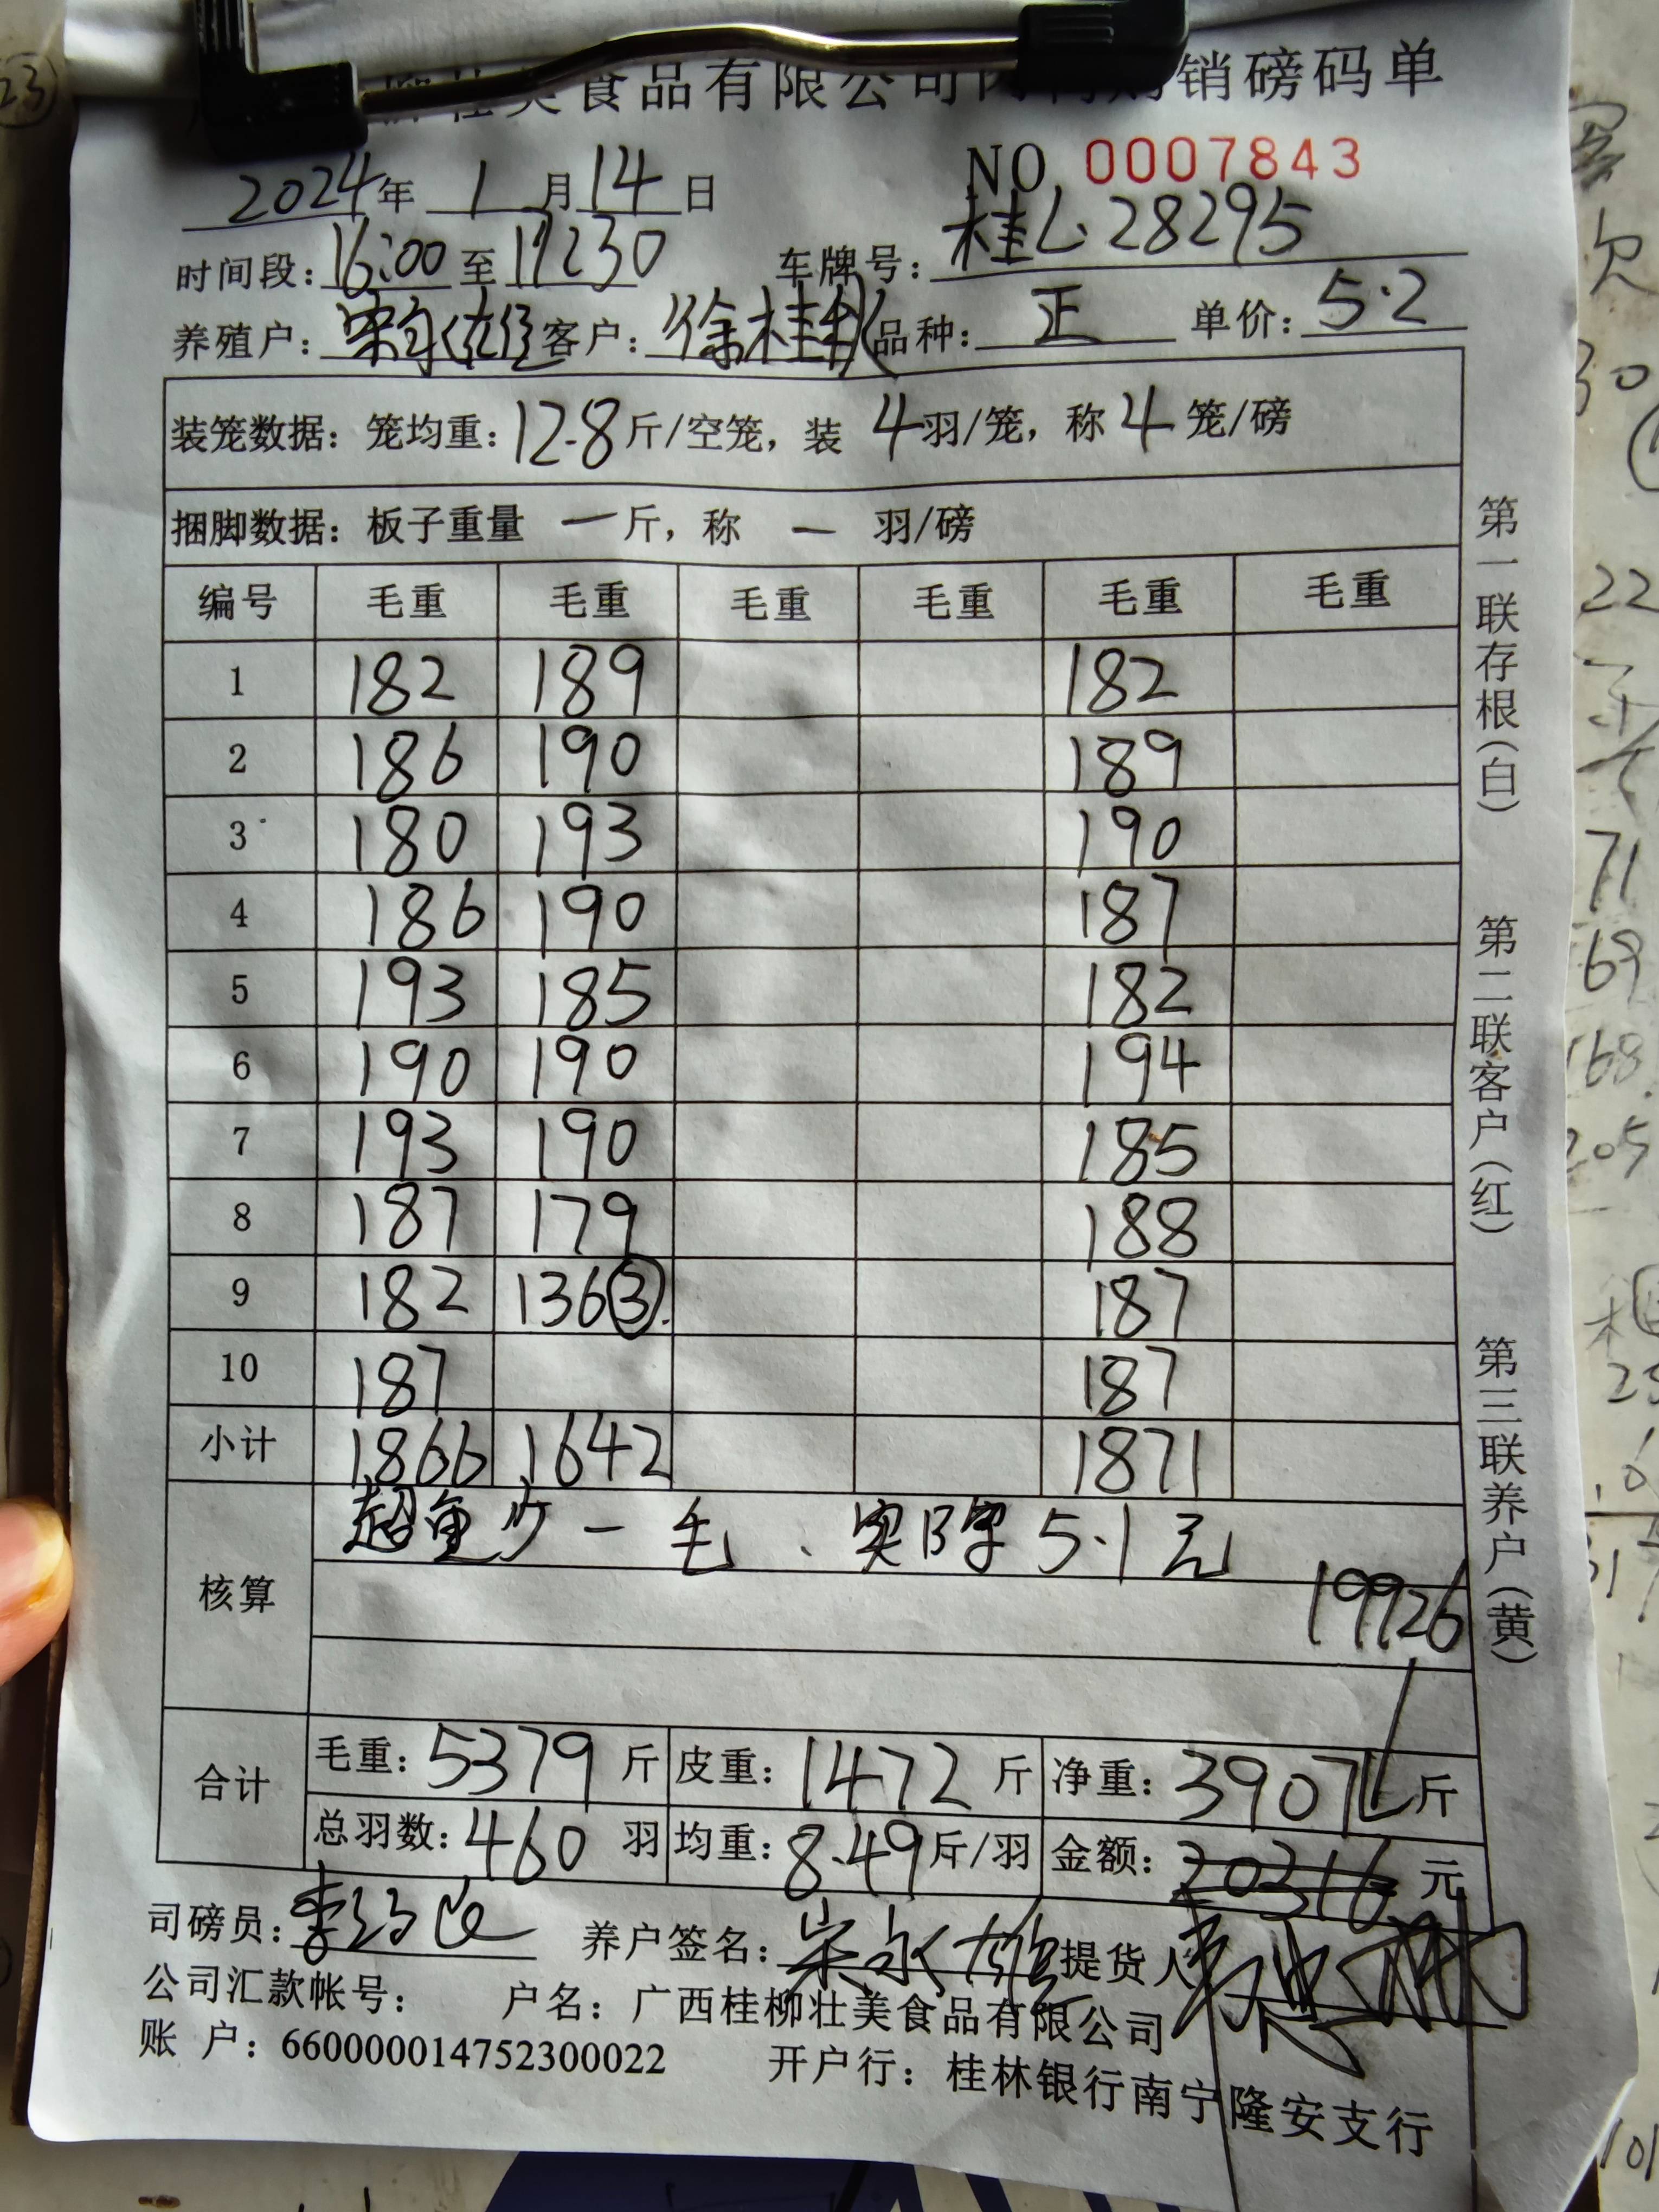 壮美食品有限公司 销磅码单
NO 0007843
2024年 1 月 14 日
时间段: 16:00 至 17:30 车牌号: 桂L·28295
养殖户: 宋永雄 客户: 徐桂秋 品种: 正 单价: 5.2
装笼数据: 笼均重: 12.8 斤/空笼, 装 4 羽/笼, 称 4 笼/磅
捆脚数据: 板子重量 一 斤, 称 一 羽/磅
编号 毛重 毛重 毛重 毛重 毛重 毛重
1 182 189 182
2 186 190 189
3 180 193 190
4 186 190 187
5 193 185 182
6 190 190 194
7 193 190 185
8 187 179 188
9 182 136③ 187
10 187 187
小计 1866 1642 1871
核算 超重少一毛、实际字5.1元
19926
合计 毛重: 5379 斤 皮重: 1472 斤 净重: 3907 斤
总羽数: 460 羽 均重: 8.49 斤/羽 金额: 20316 元
司磅员: 养户签名: 宋永雄 提货人
公司汇款帐号: 户名: 广西桂柳壮美食品有限公司
账 户: 660000014752300022 开户行: 桂林银行南宁隆安支行
第一联存根(白) 第二联客户(红) 第三联养户(黄)
23
欠
30
22
71
69
168
205